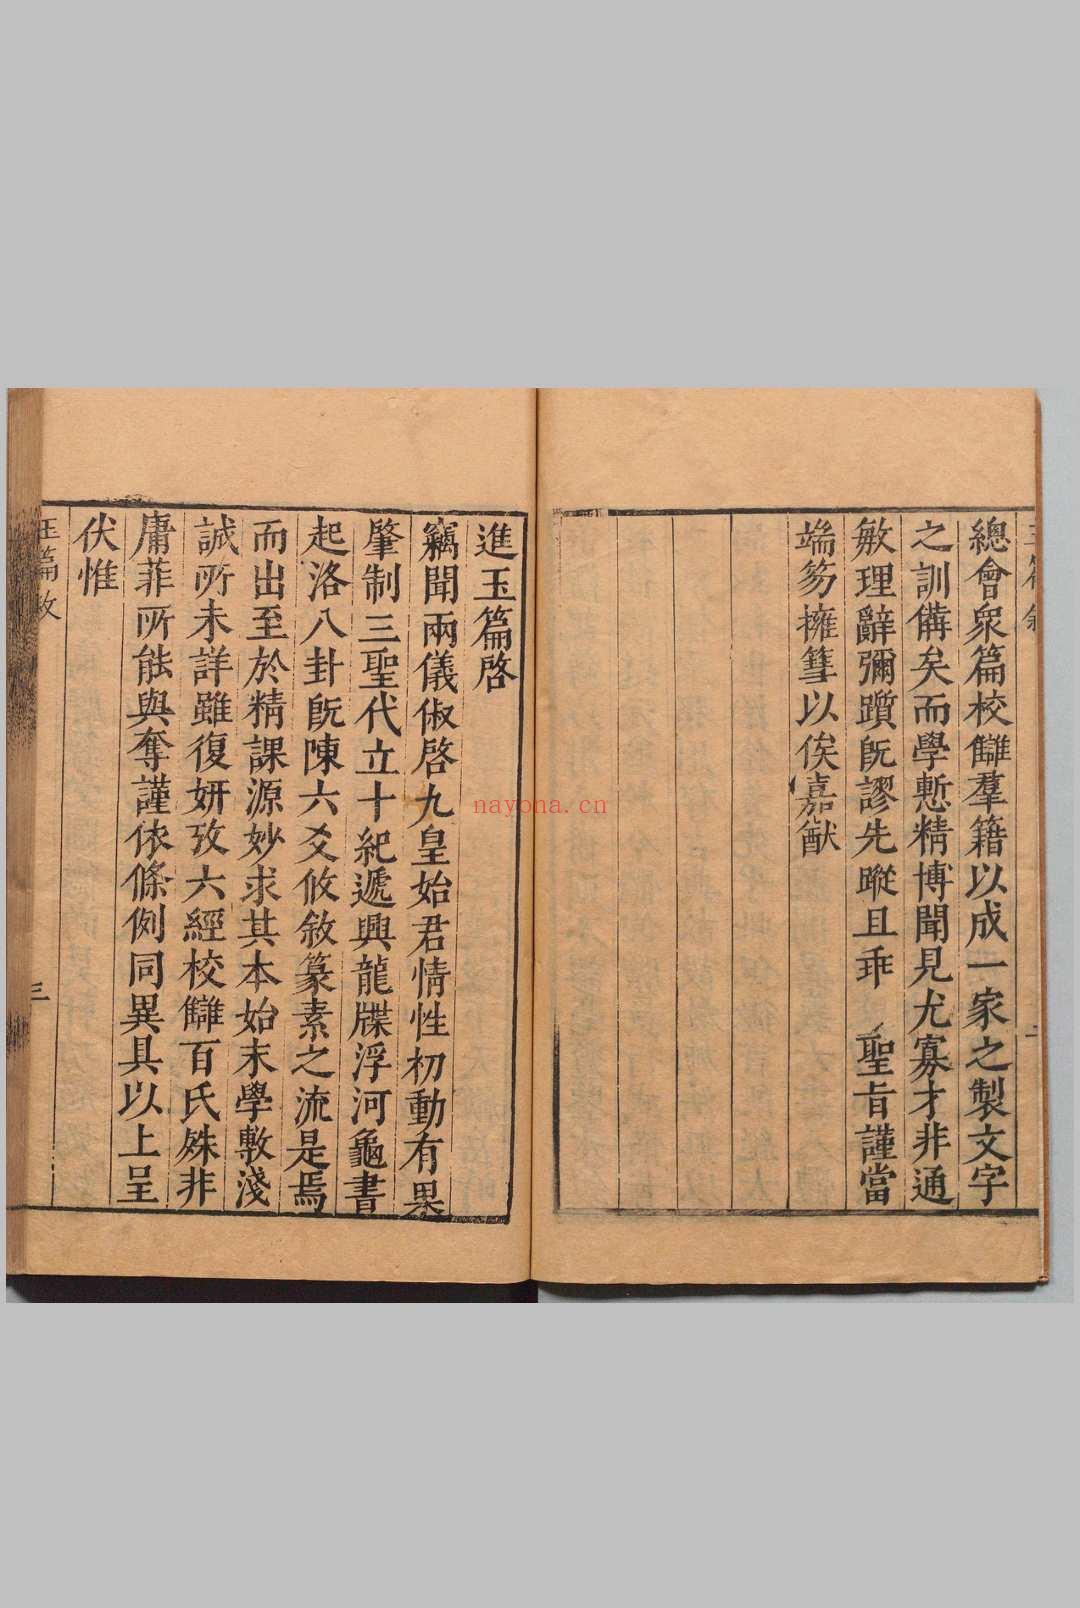 總會衆篇校讎羣籍以成一家之製文字
之訓備矣而學慙精博聞見尤寡才非通
敏理辭彌躓旣謬先蹤且乖 聖旨謹當
端笏擁篲以俟嘉猷
進玉篇啓
竊聞兩儀俶啓九皇始君情性初動有果
肇制三聖代立十紀遞興龍牒浮河龜書
起洛八卦旣陳六爻攸敘篆素之流是焉
而出至於精課源妙求其本始末學敷淺
誠所未詳雖復姸攷六經校讎百氏殊非
庸菲所能與奪謹依條例同異具以上呈
伏惟
三
nayona.cn